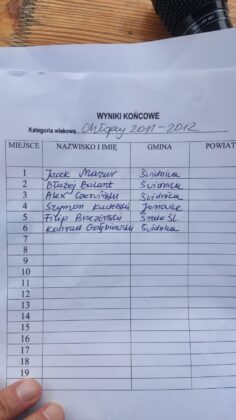 WYNIKI KOŃCOWE
Kategoria wiekowa Chłopcy 2011-2012
MIEJSCE NAZWISKO I IMIĘ GMINA POWIAT
1 Jacek Mazur Świdnica
2 Błażej Świdnica
3 Alex Świdnica
4 Szymon
5 Filip
6 Konrad Świdnica
7
8
9
10
11
12
13
14
15
16
17
18
19